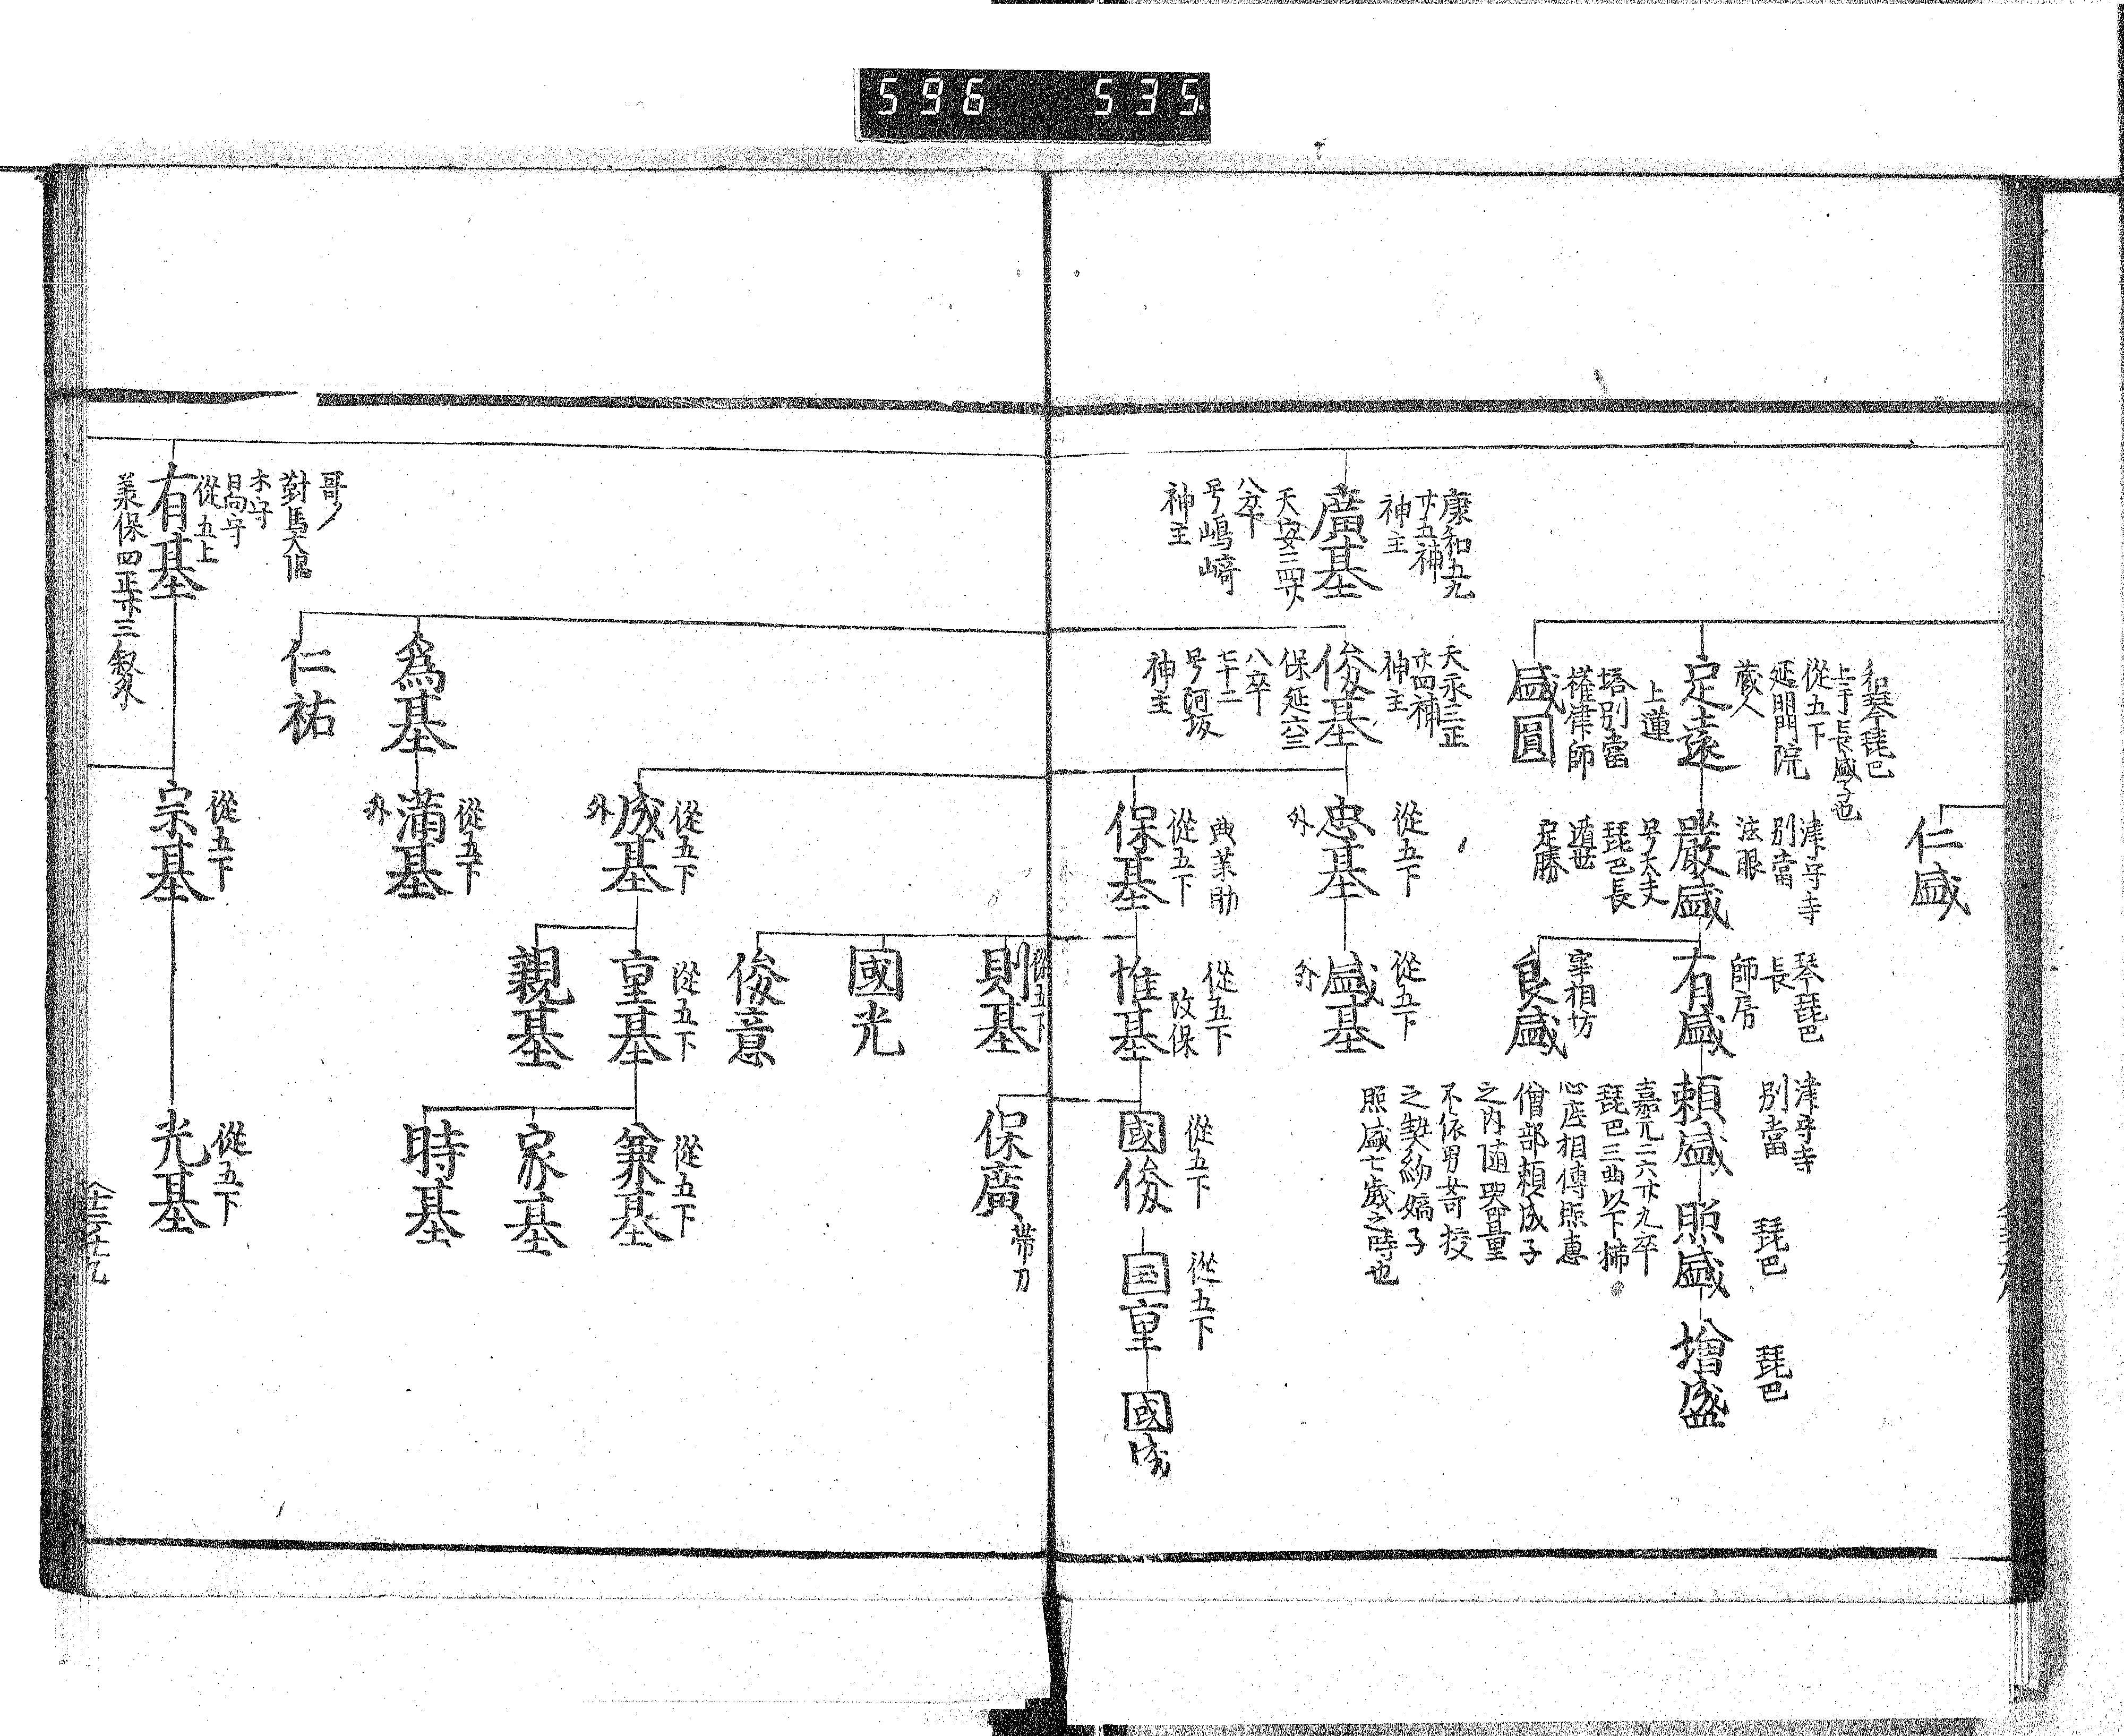 596 535
仁盛
和琴琵巴
上手長盛了也
從五下
延明門院
蔵人
定遠
上蓮
塔別當
権律師
盛圓
津守寺
別當
法眼
嚴盛
号大夫
琵巴長
遁世
定勝
琴琵巴
長
師房
有盛
宰相坊
良盛
津守寺
別當
頼盛
嘉元二六廿九卒
琵巴三曲以下掃
心底相傳照惠
僧都頼成子
之内随器量
不依男女可授
之契約嫡子
照盛七歳之時也
琵巴
照盛
琵巴
增盛
康和五九
廿五神
神主
廣基
天安三四八
号嶋﨑
神主
天永三正
廿四神
神主
俊基
保延六三
八卒
七十二
号阿坂
神主
從五下
忠基
外
從五下
盛基
外
典藥助
從五下
保基
從五下
改保
惟基
從五下
國俊
從五下
国重
國成
保廣
帯刀
從五下
則基
國光
俊意
從五下
成基
外
從五下
重基
親基
從五下
兼基
家基
時基
為基
從五下
満基
外
仁祐
哥
對馬大隅
木守
日向守
從五上
有基
從五下
宗基
從五下
光基